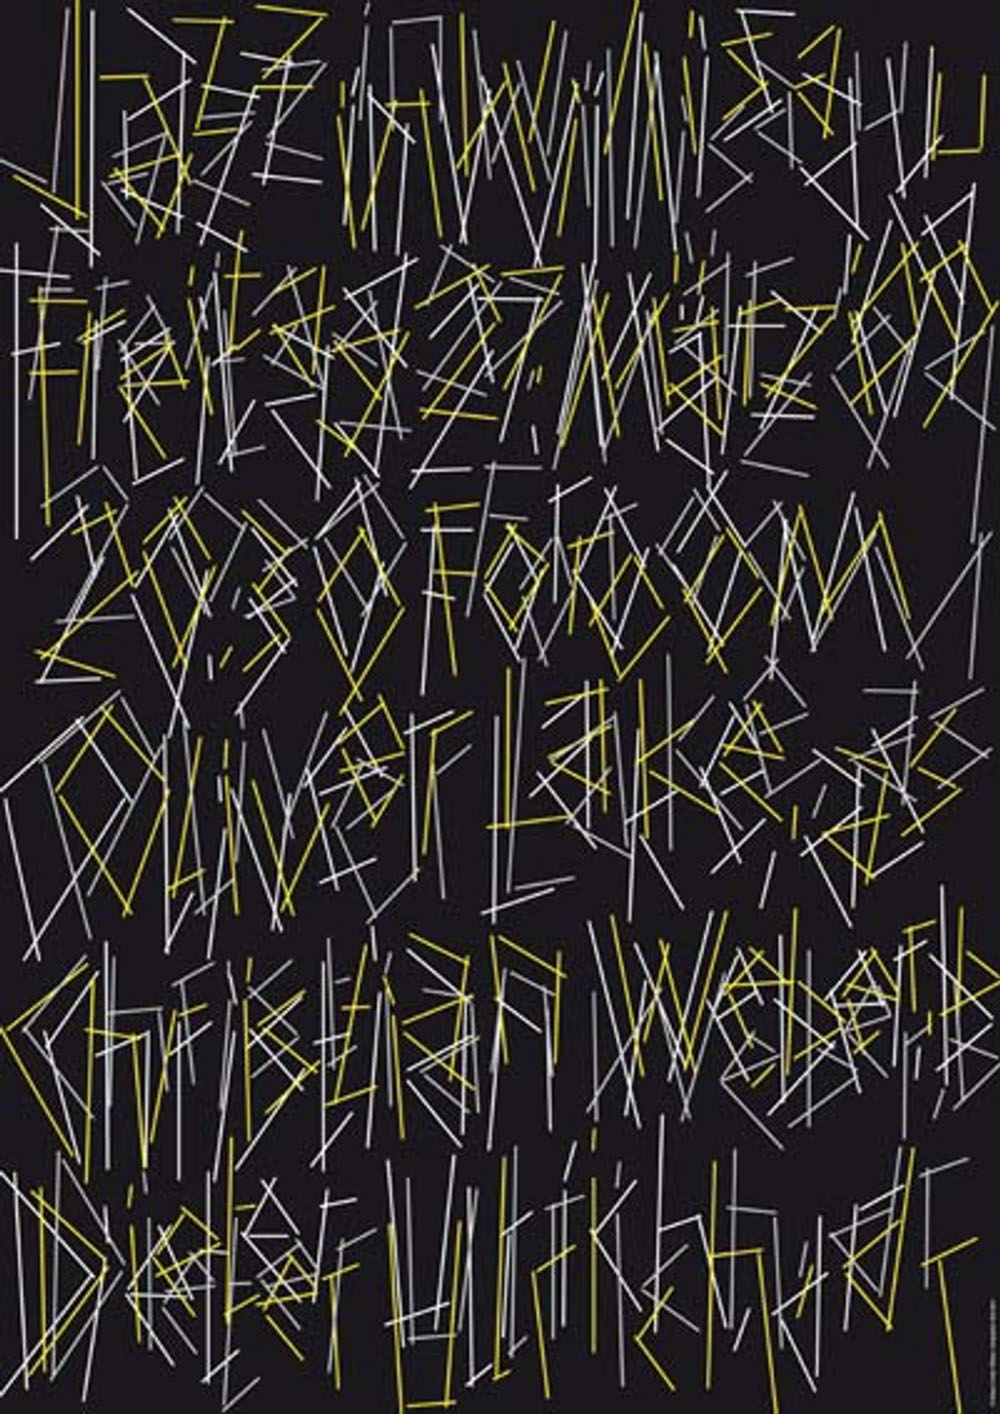 Jazz in Willisau
Freitag 27. März 09
20.30 Foroom
Oliver Lake, as
Christian Weber, b
Dieter Ulrich, dr